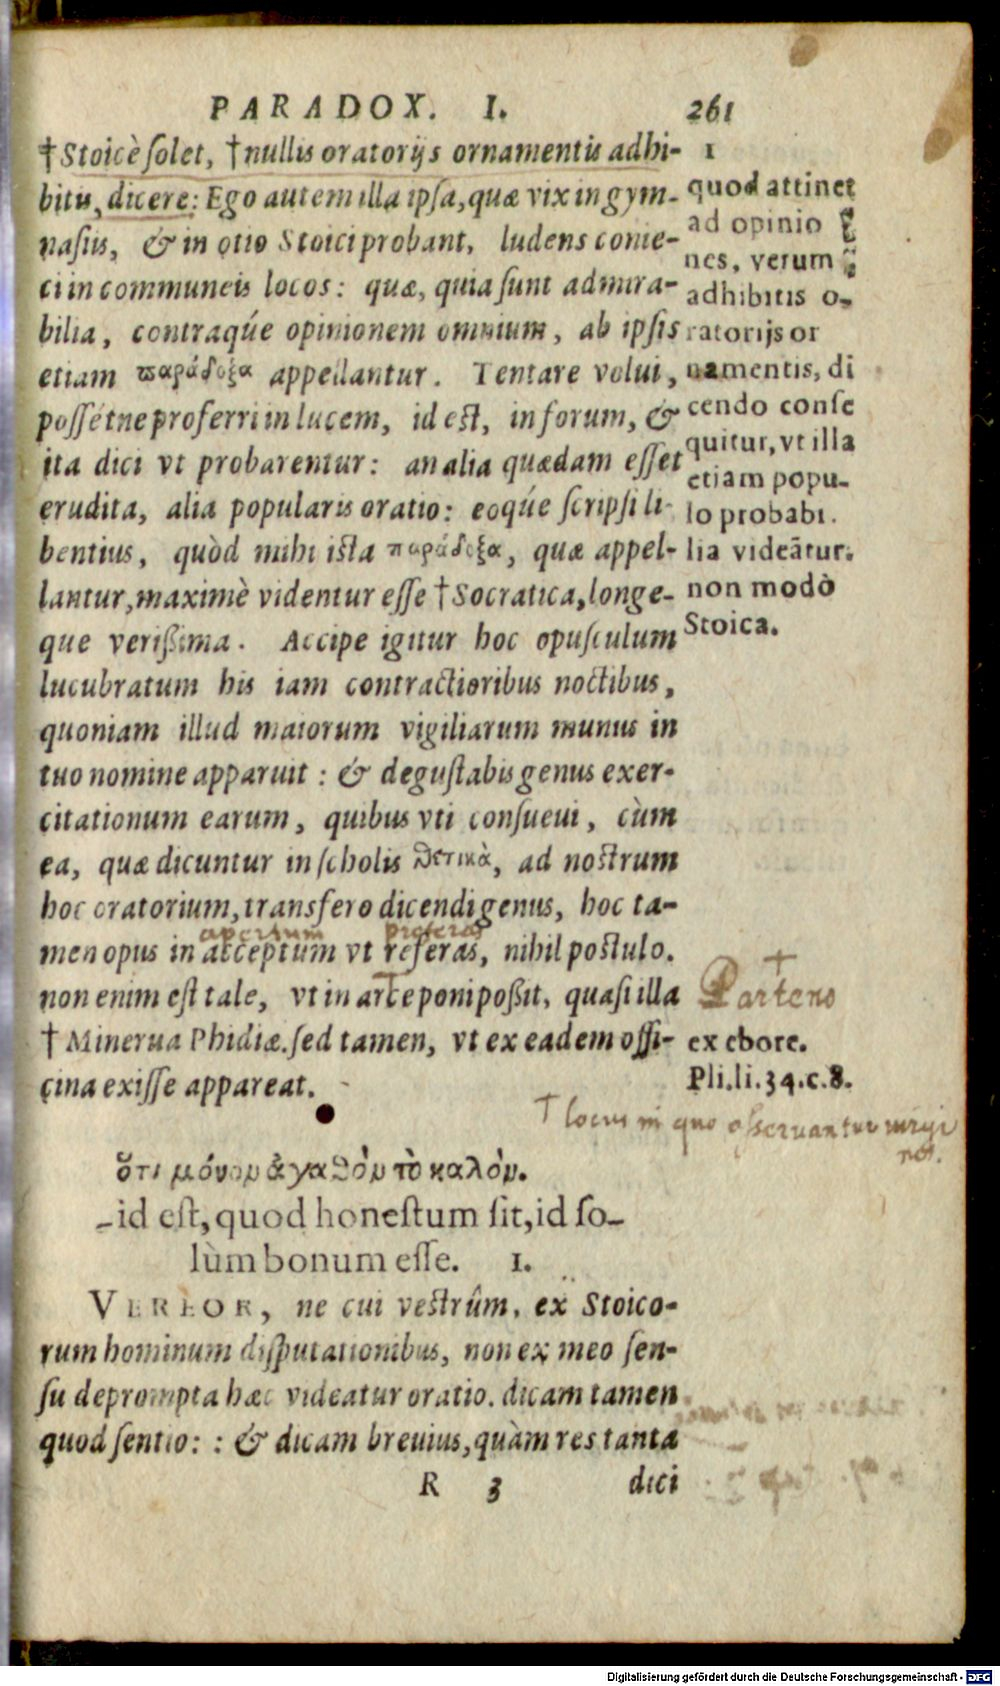 PARADOX. I. 261
†Stoicè solet, †nullis oratorijs ornamentis adhi-
bitis, dicere: Ego autem illa ipsa, quæ vix in gym-
nasiis, & in otio Stoici probant, ludens conie-
ci in communeis locos: quæ, quia sunt admira-
bilia, contraqúe opinionem omnium, ab ipsis
etiam παράδοξα appellantur. Tentare volui,
possétne proferri in lucem, id est, in forum, &
ita dici vt probarentur: an alia quædam esset
erudita, alia popularis oratio: eoqúe scripsi li-
bentius, quòd mihi ista παράδοξα, quæ appel-
lantur, maximè videntur esse †Socratica, longe-
que verißima. Accipe igitur hoc opusculum
lucubratum his iam contractioribus noctibus,
quoniam illud maiorum vigiliarum munus in
tuo nomine apparuit: & degustabis genus exer-
citationum earum, quibus vti consueui, cùm
ea, quæ dicuntur in scholis θετικὰ, ad nostrum
hoc oratorium, transfero dicendi genus, hoc ta-
apertum proferas
men opus in acceptum vt referas, nihil postulo.
non enim est tale, vt in arce poni poßit, quasi illa
† Minerua Phidiæ. sed tamen, vt ex eadem offi-
cina exisse appareat.
1
quod attinet
ad opinio
nes, verum
adhibitis o-
ratorijs or
namentis, di
cendo conse
quitur, vt illa
etiam popu-
lo probabi.
lia videātur.
non modò
Stoica.
†
Parteno
ex ebore.
Pli. li. 34. c. 8.
† locus in quo obseruantur uirgi
nes.
ὅτι μόνον ἀγαθὸν τὸ καλόν.
-id est, quod honestum sit, id so-
lùm bonum esse. I.
VEREOR, ne cui vestrûm, ex Stoico-
rum hominum disputationibus, non ex meo sen-
su deprompta hæc videatur oratio. dicam tamen
quod sentio: : & dicam breuius, quàm res tanta
R 3 dici
Digitalisierung gefördert durch die Deutsche Forschungsgemeinschaft - DFG